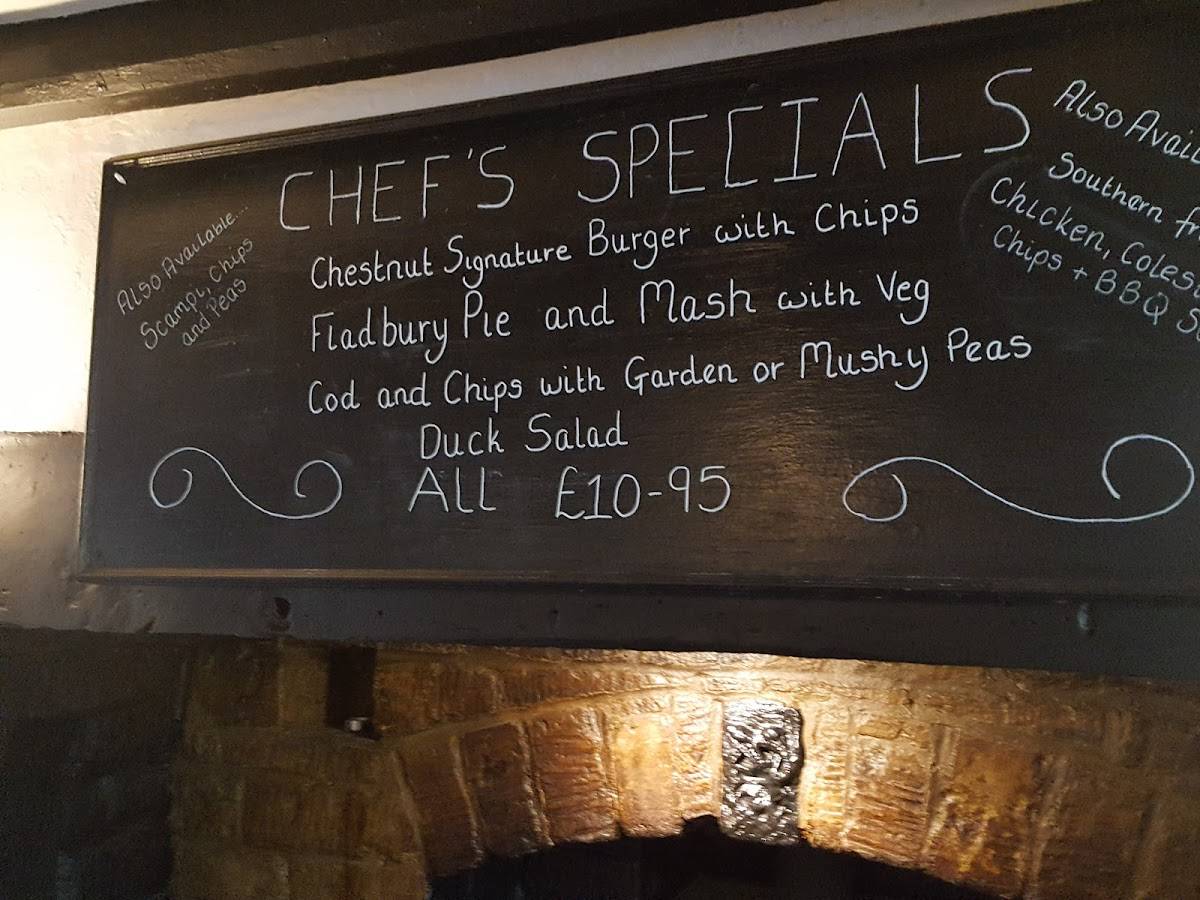 CHEF'S SPECIALS
Chestnut Signature Burger with Chips
Fladbury Pie and Mash with Veg
Cod and Chips with Garden or Mushy Peas
Duck Salad
ALL £10-95
Also Available...
Scampi, Chips
and Peas
Also
Southern
Chicken,
Chips + BBQ